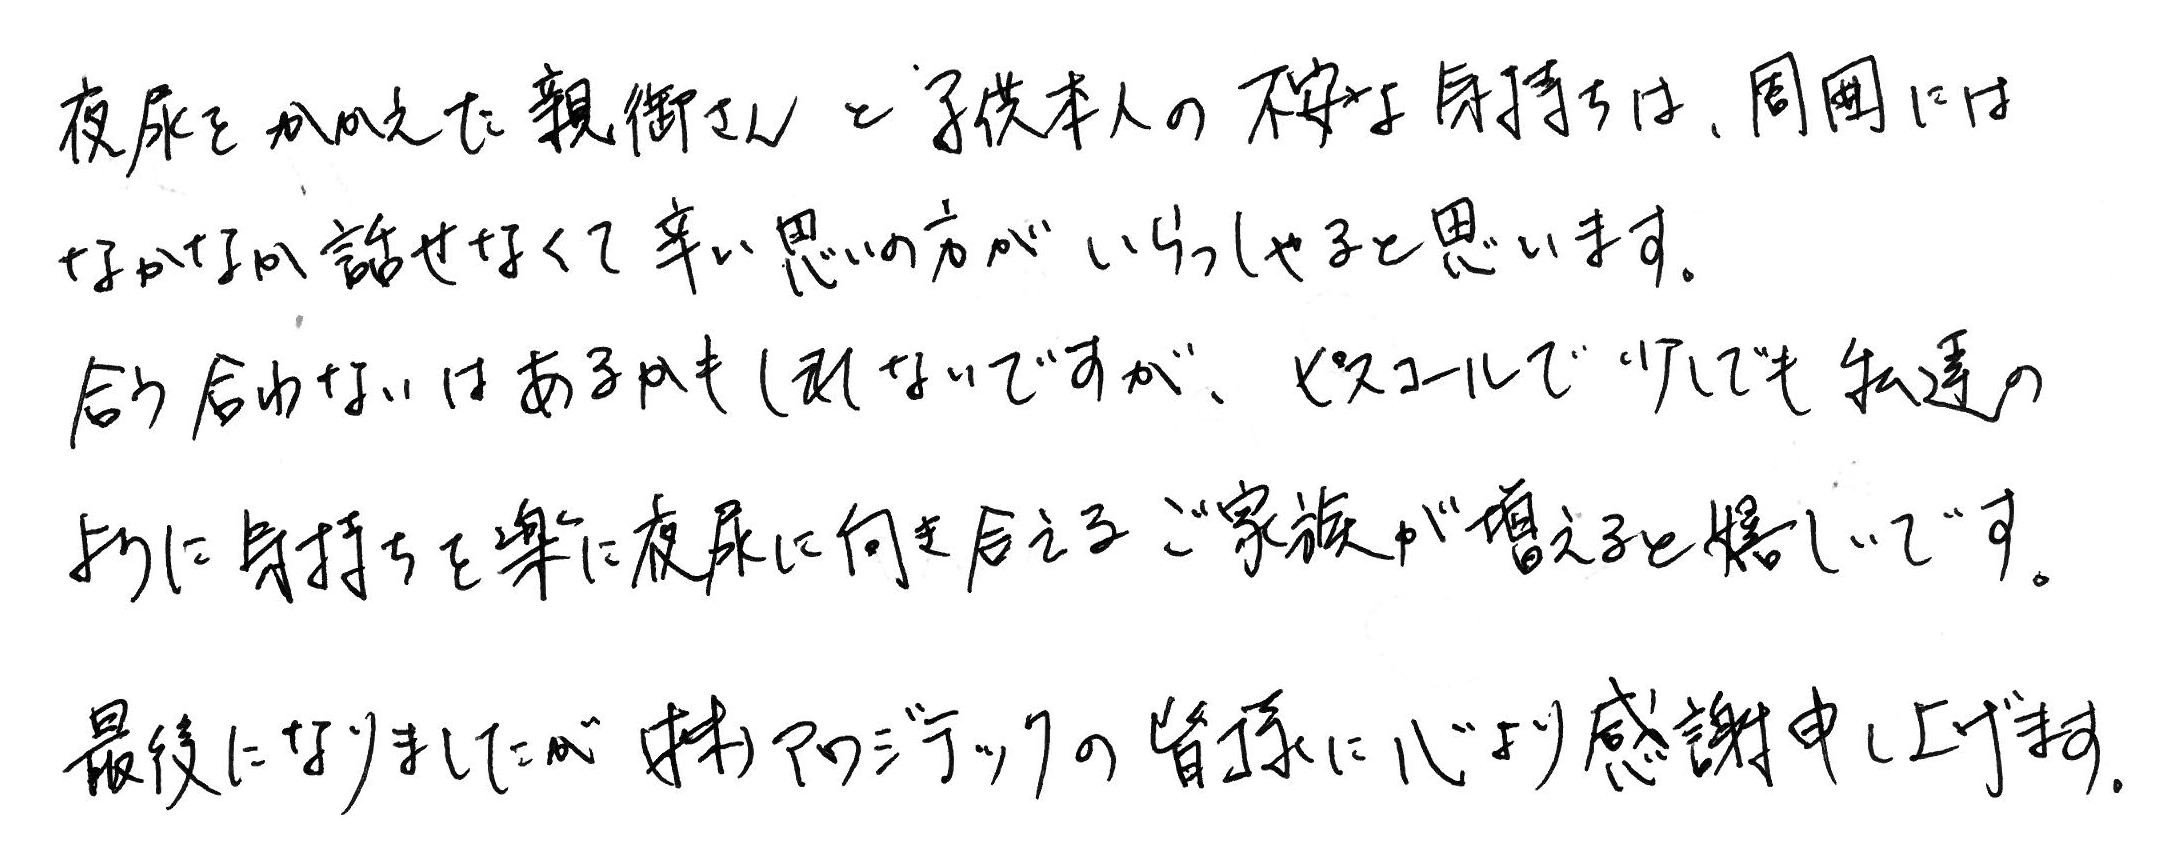 夜尿をかかえた親御さんと子供本人の不安な気持ちは、周囲には
なかなか話せなくて辛い思いの方がいらっしゃると思います。
合う合わないはあるかもしれないですが、ピスコールで少しでも私達の
ように気持ちを楽に夜尿に向き合えるご家族が増えると嬉しいです。
最後になりましたが(株)アワジテックの皆様に心より感謝申し上げます。